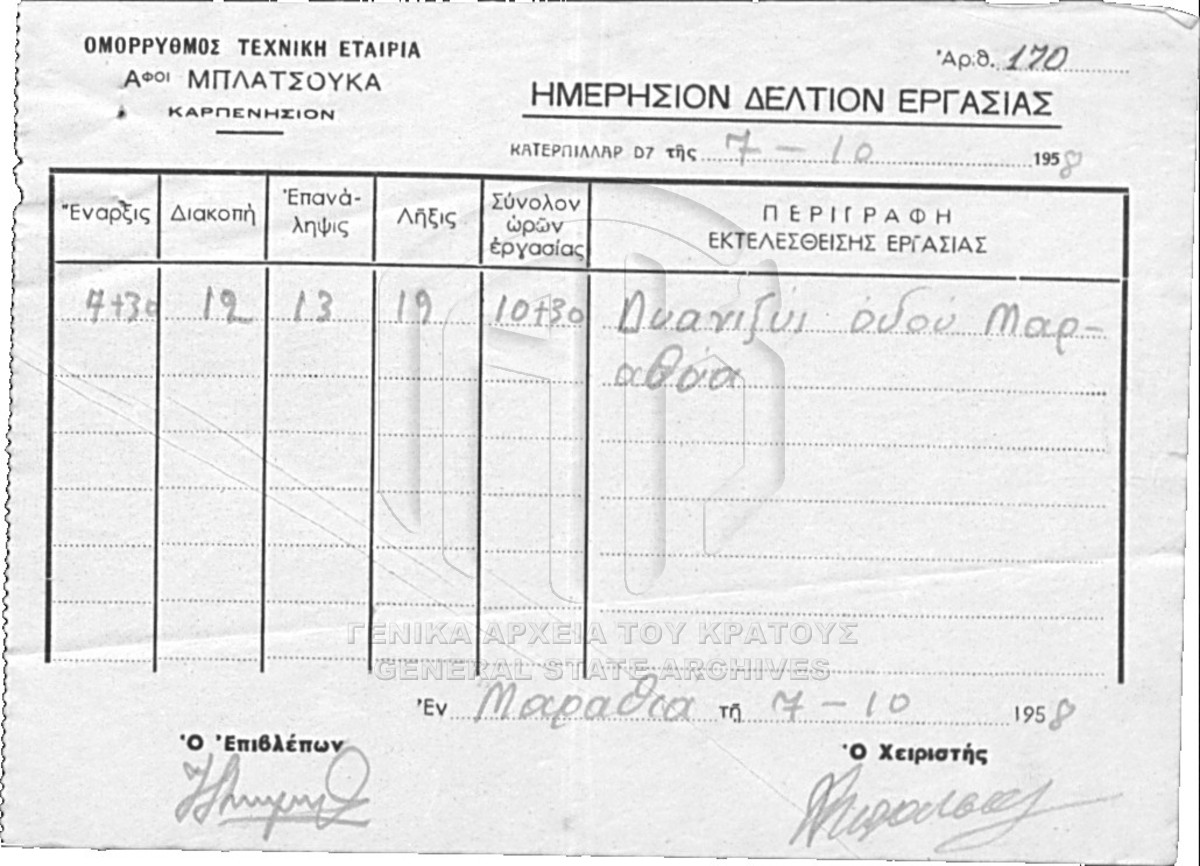 ΟΜΟΡΡΥΘΜΟΣ ΤΕΧΝΙΚΗ ΕΤΑΙΡΙΑ
ΑΦΟΙ ΜΠΛΑΤΣΟΥΚΑ
ΚΑΡΠΕΝΗΣΙΟΝ
Ἀριθ. 170
ΗΜΕΡΗΣΙΟΝ ΔΕΛΤΙΟΝ ΕΡΓΑΣΙΑΣ
ΚΑΤΕΡΠΙΛΛΑΡ D7 τῆς 7 - 10 1958
Ἔναρξις Διακοπή Ἐπανάληψις Λῆξις Σύνολον ὡρῶν ἐργασίας ΠΕΡΙΓΡΑΦΗ ΕΚΤΕΛΕΣΘΕΙΣΗΣ ΕΡΓΑΣΙΑΣ
7+30 12 13 19 10+30 ὁδού Μαρ-
αθιά
ΓΕΝΙΚΑ ΑΡΧΕΙΑ ΤΟΥ ΚΡΑΤΟΥΣ
GENERAL STATE ARCHIVES
Ἐν Μαραθιά τῇ 7 - 10 1958
Ὁ Ἐπιβλέπων Ὁ Χειριστής